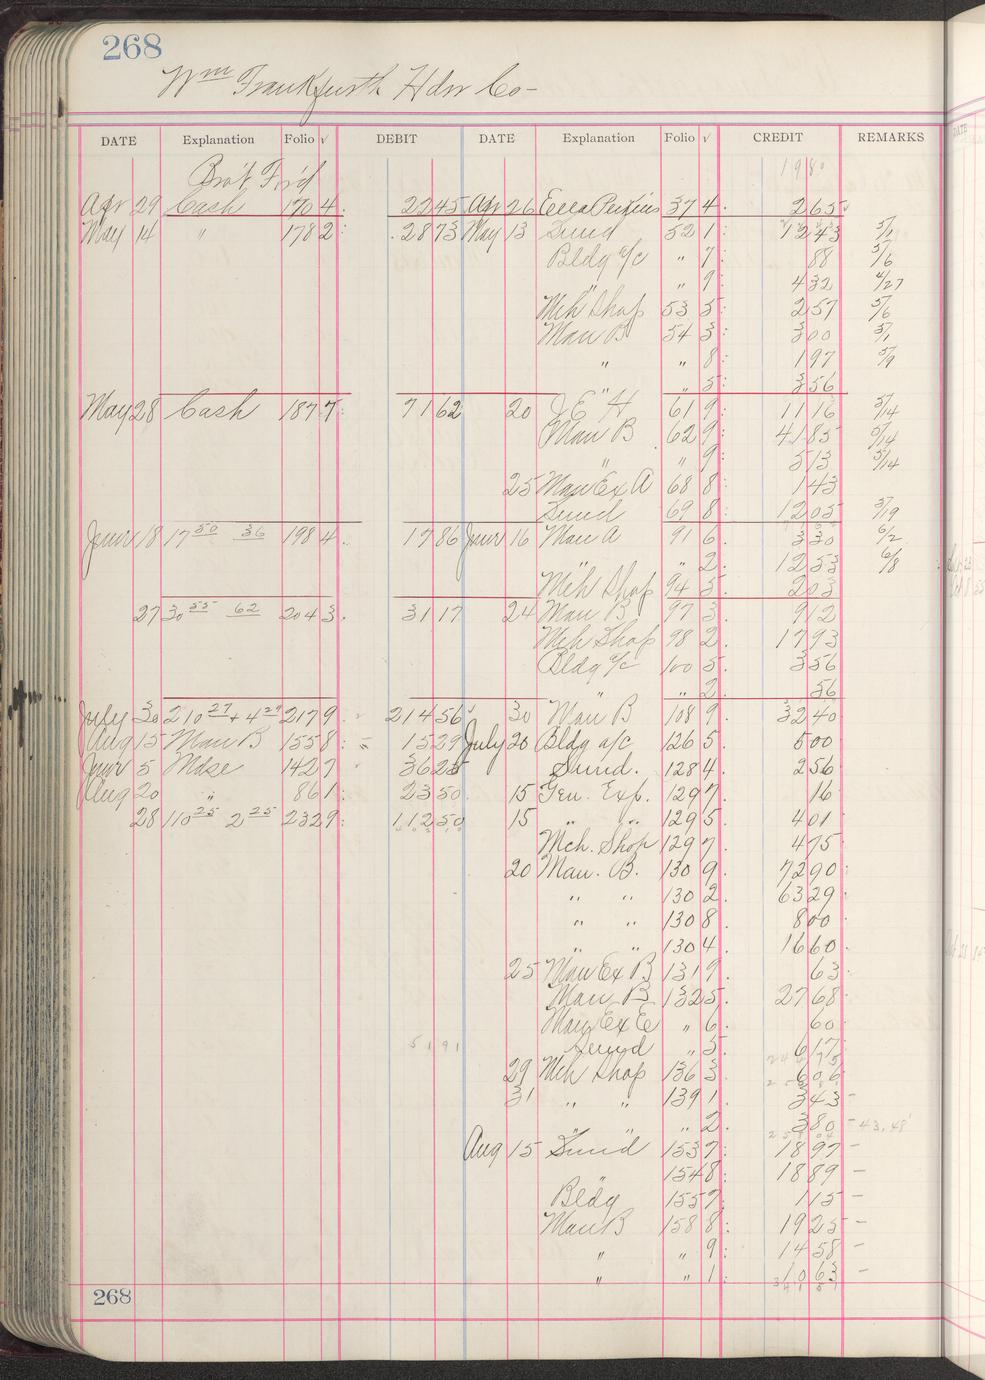 268
Wm Frankfurth Hdw Co-
DATE Explanation Folio √ DEBIT DATE Explanation Folio √ CREDIT REMARKS
Bro't For'd 1980
Apr 29 Cash 170 4 2245 Apr 26 Ella Perkins 37 4 265
May 14 " 178 2 2873 May 13 Sund 52 1 1243 5/1
Bldg a/c " 7 88 5/6
" " 9 432 4/27
Mch Shop 53 5 257 5/6
Man B 54 3 300 5/1
" " 8 197 5/9
" " 5 356
May 28 Cash 187 7 7162 20 J E H 61 9 1116 5/14
Man B 62 9 4185 5/14
" " 9 513 5/14
25 Man Ex A 68 8 143
Sund 69 8 1205 5/19
June 18 17 50 36 198 4 1786 June 16 Man A 91 6 330 6/2
" " 2 1253 6/8
Mch Shop 94 5 203
27 30 55 62 204 3 3117 24 Man B 97 3 912
Mch Shop 98 2 1793
Bldg a/c 100 5 356
" " 2 56
July 30 210 27 + 4 29 217 9 21456 30 Man B 108 9 3240
Aug 15 Man B 155 8 1529 July 20 Bldg a/c 126 5 500
June 5 Mdse 142 7 3625 Sund. 128 4 256
Aug 20 " 86 1 2350 15 Gen. Exp. 129 7 16
28 110 25 2 25 232 9 11250 15 " " 129 5 401
Mch. Shop 129 7 475
20 Man. B. 130 9 7290
" " 130 2 6329
" " 130 8 800
" " 130 4 1660
25 Man Ex B 131 9 63
Man B 132 5 2768
Man Ex E " 6 60
5191 Sund " 5 617
29 Mch Shop 136 3 606
31 " " 139 1 343 -
" " " 2 380 - 43,48
Aug 15 Sund 153 7 1897 -
" 154 8 1889 -
Bldg 155 7 115 -
Man B 158 8 1925 -
" " 9 1458 -
" " 1 1063 -
268